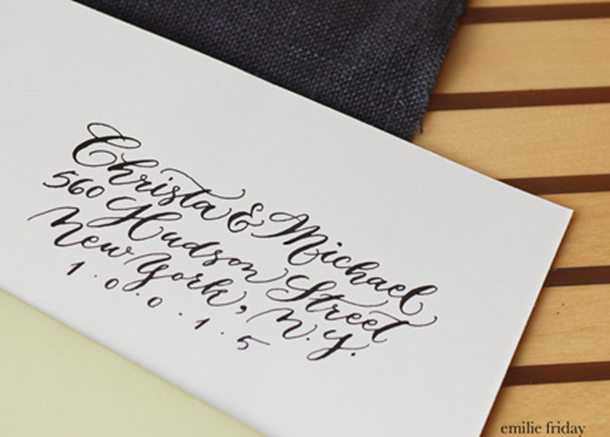 Christa & Michael
560 Hudson Street
New York, N.Y.
1.0.0.1.5
emilie friday